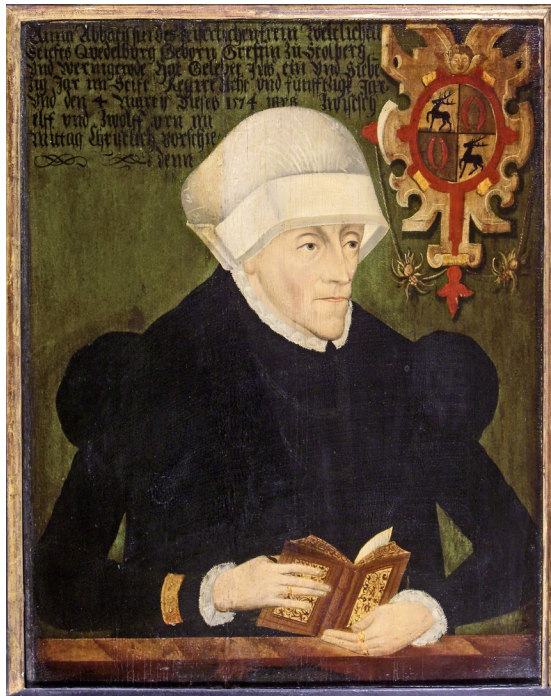 Anna Abbatissin des keyserlichen freien Weltlichen
Stiftes Quedelburg Geborn Greffin Zu Stolberg
Und Wernigerode Hat Gelebet Ins ein Und Siebe
zig Jar im Stift Regirt Acht und funfftzigk Jar
Und den 4 Marcy Dieses 1574 Jars Zwischen
elf und Zwolff urn im
Mittag Christlich vorschie
denn